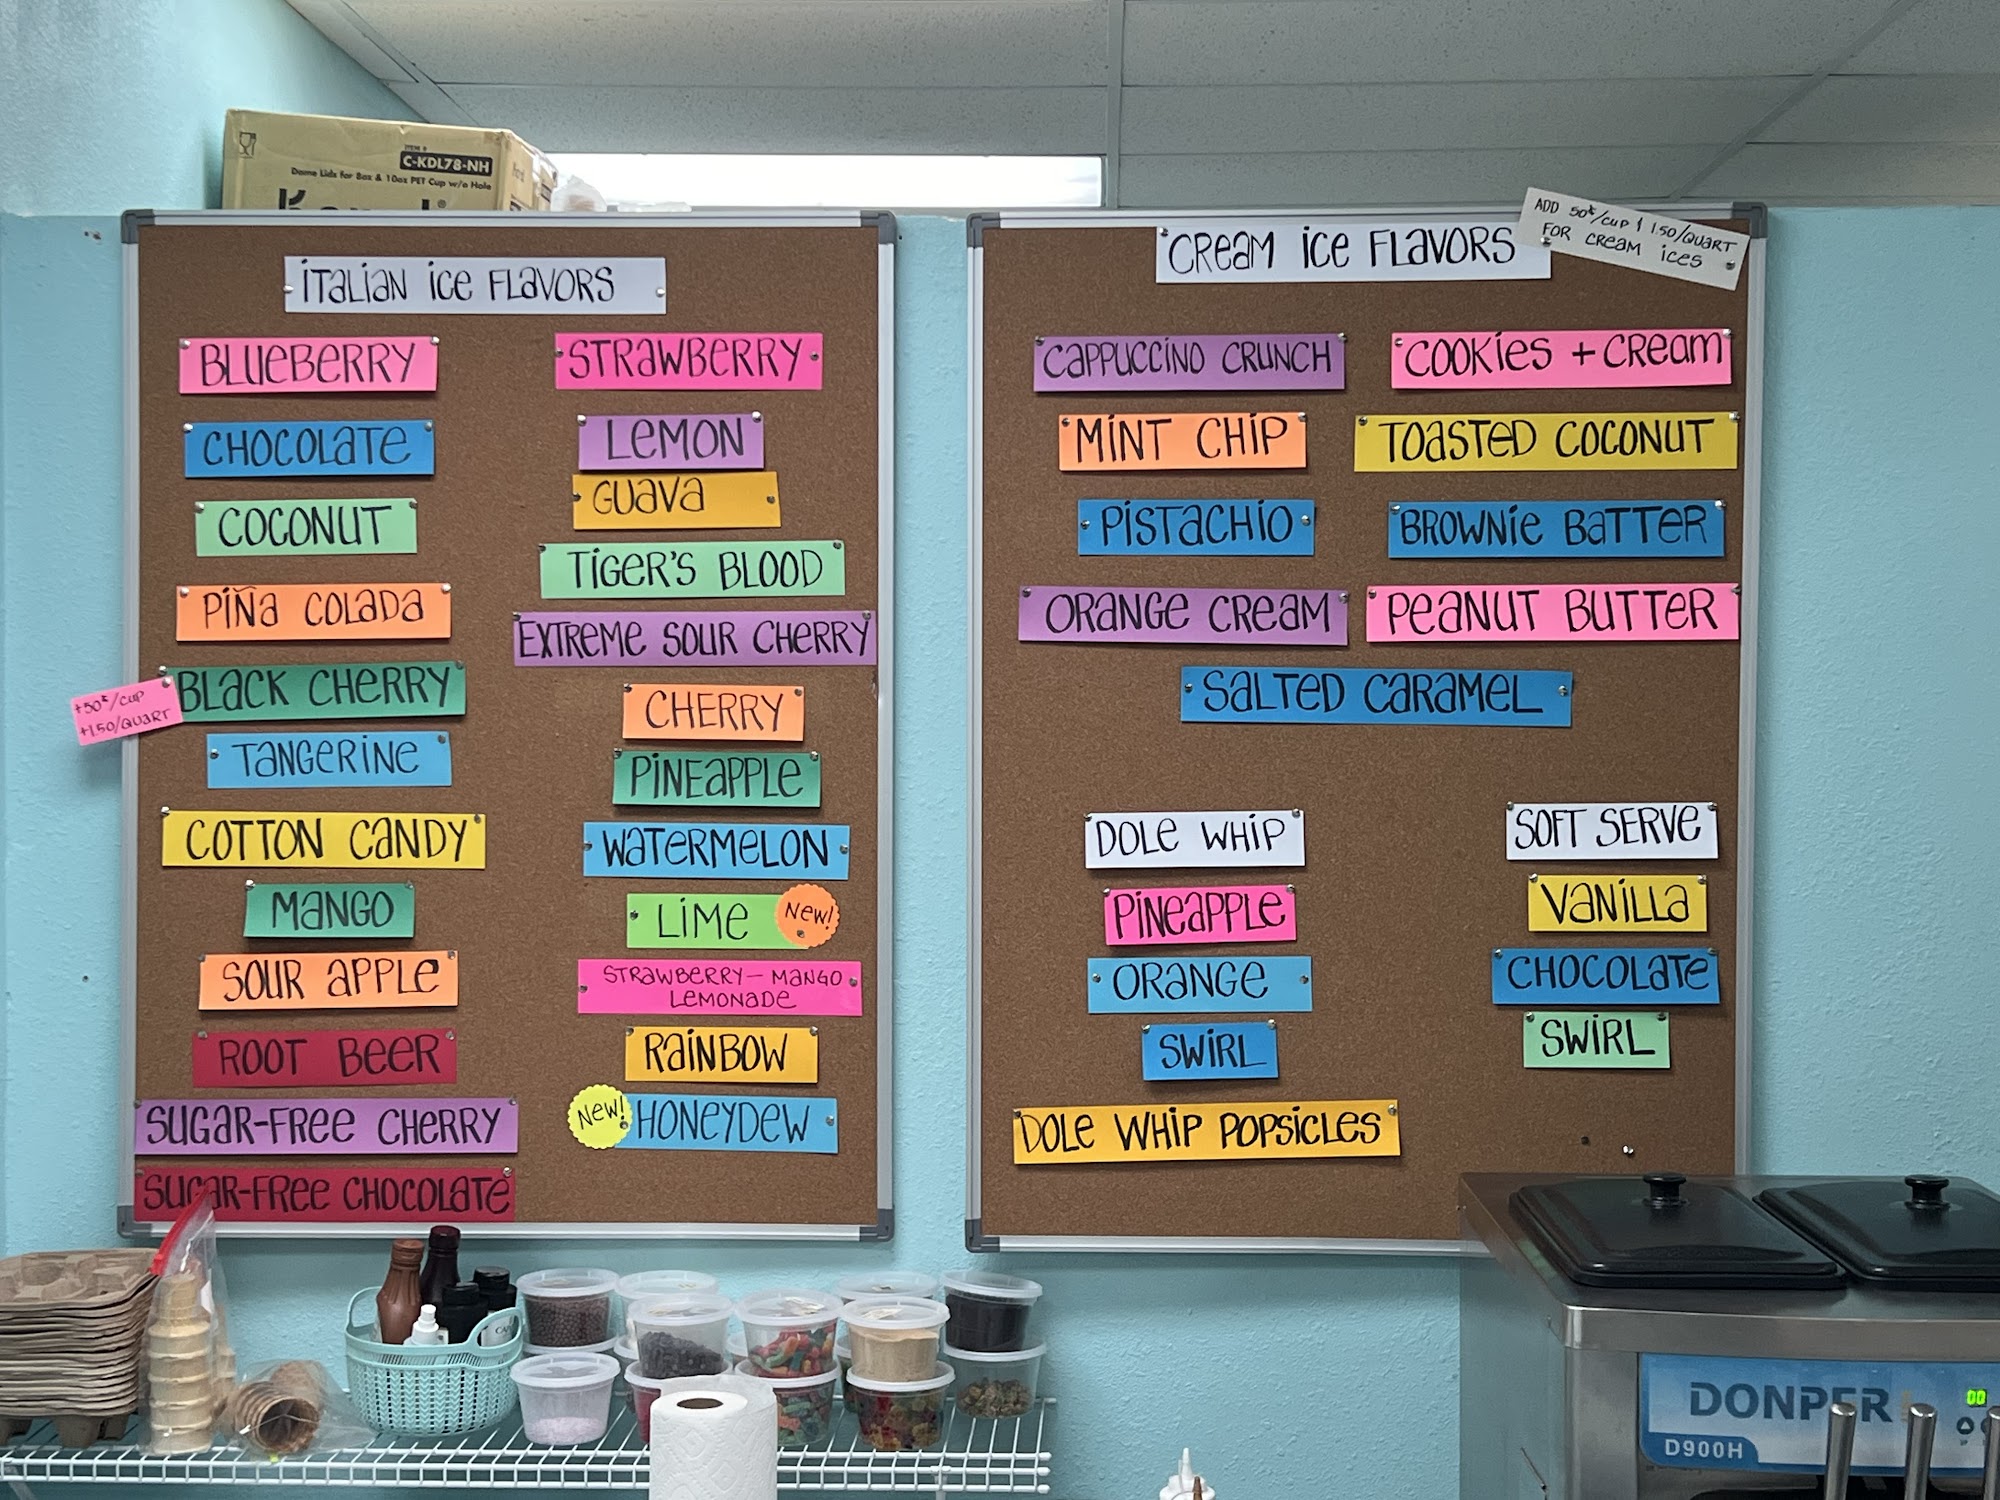 ITEM #
C-KDL78-NH
Dome Lids for 8oz & 10oz PET Cup w/o Hole
Karat
ITALIAN ICE FLAVORS
BLUEBERRY
CHOCOLATE
COCONUT
PIÑA COLADA
BLACK CHERRY
+50¢/CUP
+1.50/QUART
TANGERINE
COTTON CANDY
MANGO
SOUR APPLE
ROOT BEER
SUGAR-FREE CHERRY
SUGAR-FREE CHOCOLATE
STRAWBERRY
LEMON
GUAVA
TIGER'S BLOOD
EXTREME SOUR CHERRY
CHERRY
PINEAPPLE
WATERMELON
LIME
NEW!
STRAWBERRY-MANGO
LEMONADE
RAINBOW
NEW!
HONEYDEW
CREAM ICE FLAVORS
ADD 50¢/CUP & 1.50/QUART
FOR CREAM ICES
CAPPUCCINO CRUNCH
MINT CHIP
PISTACHIO
ORANGE CREAM
COOKIES + CREAM
TOASTED COCONUT
BROWNIE BATTER
PEANUT BUTTER
SALTED CARAMEL
DOLE WHIP
PINEAPPLE
ORANGE
SWIRL
DOLE WHIP POPSICLES
SOFT SERVE
VANILLA
CHOCOLATE
SWIRL
DONPER
D900H
00